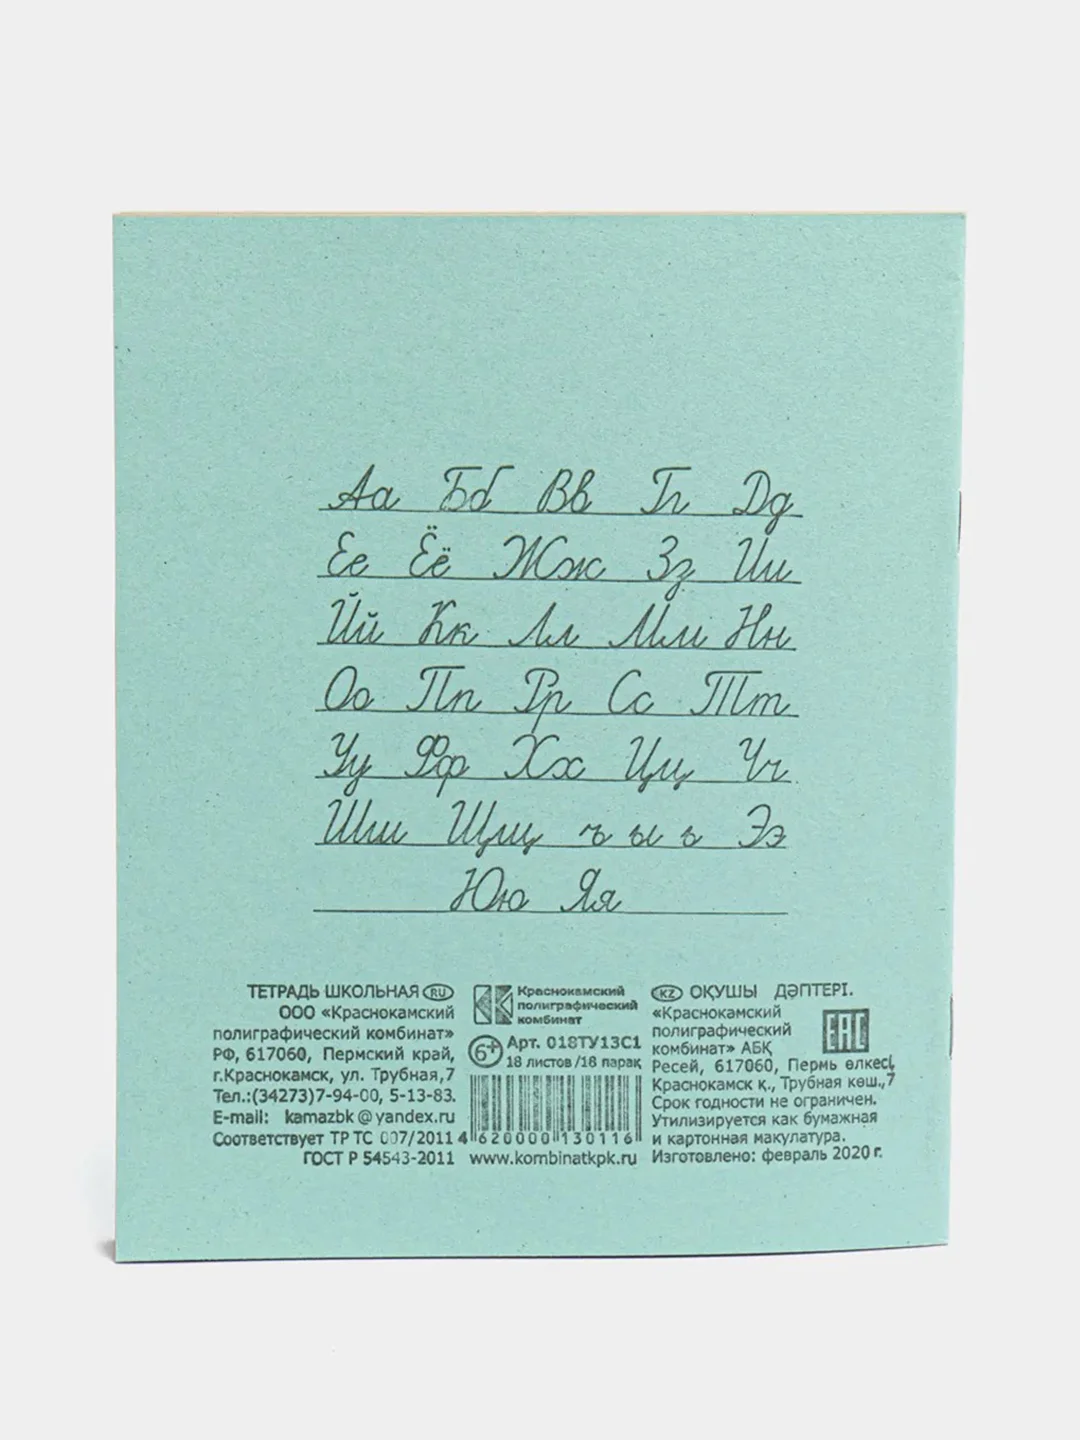 Аа Бб Вв Гг Дд
Ее Ёё Жж Зз Ии
Йй Кк Лл Мм Нн
Оо Пп Рр Сс Тт
Уу Фф Хх Цц Чч
Шш Щщ ъ ы ь Ээ
Юю Яя
ТЕТРАДЬ ШКОЛЬНАЯ RU
ООО «Краснокамский
полиграфический комбинат»
РФ, 617060, Пермский край,
г.Краснокамск, ул. Трубная,7
Тел.:(34273)7-94-00, 5-13-83.
E-mail: kamazbk@yandex.ru
Соответствует ТР ТС 007/2011
ГОСТ Р 54543-2011
Краснокамский
полиграфический
комбинат
6+ Арт. 018ТУ13С1
18 листов/18 парақ
4 620000 130116
www.kombinatkpk.ru
KZ ОҚУШЫ ДӘПТЕРІ.
«Краснокамский
полиграфический
комбинат» АБҚ
EAC
Ресей, 617060, Пермь өлкесі,
Краснокамск қ., Трубная көш.,7
Срок годности не ограничен.
Утилизируется как бумажная
и картонная макулатура.
Изготовлено: февраль 2020 г.